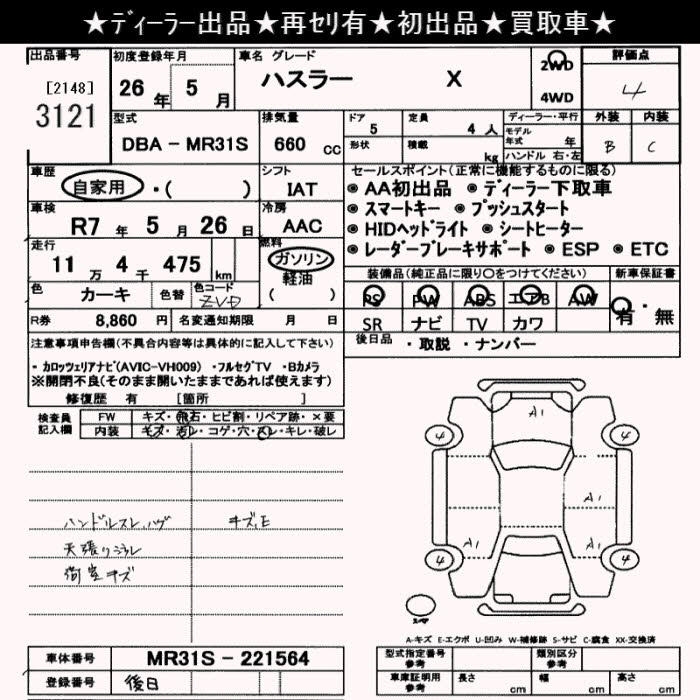 ★ディーラー出品★再セリ有★初出品★買取車★
出品番号 初度登録年月 車名 グレード 評価点
[2148] 26年 5月 ハスラー X 2WD 4
3121 4WD
型式 排気量 ドア 定員 ディーラー・平行 外装 内装
DBA－MR31S 660 cc 5 4人 モデル年式 年 B C
形状 積載 kg ハンドル 右・左
車歴 シフト セールスポイント(正常に機能するものに限る)
自家用 ・( ) IAT ◉AA初出品 ◉ディーラー下取車
車検 冷房 ◉スマートキー ◉プッシュスタート
R7年 5月 26日 AAC ◉HIDヘッドライト ◉シートヒーター
走行 燃料 ◉レーダーブレーキサポート ◉ESP ◉ETC
11万 4千 475 km ガソリン 装備品(純正品に限り○をつけてください) 新車保証書
軽油
色 カーキ 色替 色コード ( ) PS PW ABS エアB AW 有・無
ZVD
R券 8,860 円 名変通知期限 月 日 SR ナビ TV カワ
注意事項申告欄(不具合内容等は具体的に記入して下さい) 後日品 ・取説 ・ナンバー
・カロッツェリアナビ(AVIC-VH009) ・フルセグTV ・Bカメラ
※開閉不良(そのまま開いたままであれば使えます)
修復歴 有 [箇所 ]
検査員 FW キズ・飛石・ヒビ割・リペア跡・×要
記入欄 内装 キズ・汚レ・コゲ・穴・スレ・キレ・破レ
A1
4 4
A1
ハンドルスレ、ハゲ キズ、E
天張り汚レ A1 A1
荷室キズ 4 4
A-キズ E-エクボ U-凹み W-補修跡 S-サビ C-腐食 XX-交換済
車体番号 MR31S－221564 型式指定番号 参考 類別区分 参考
登録番号 後日 車庫証明用 参考 長さ cm 幅 cm 高さ cm